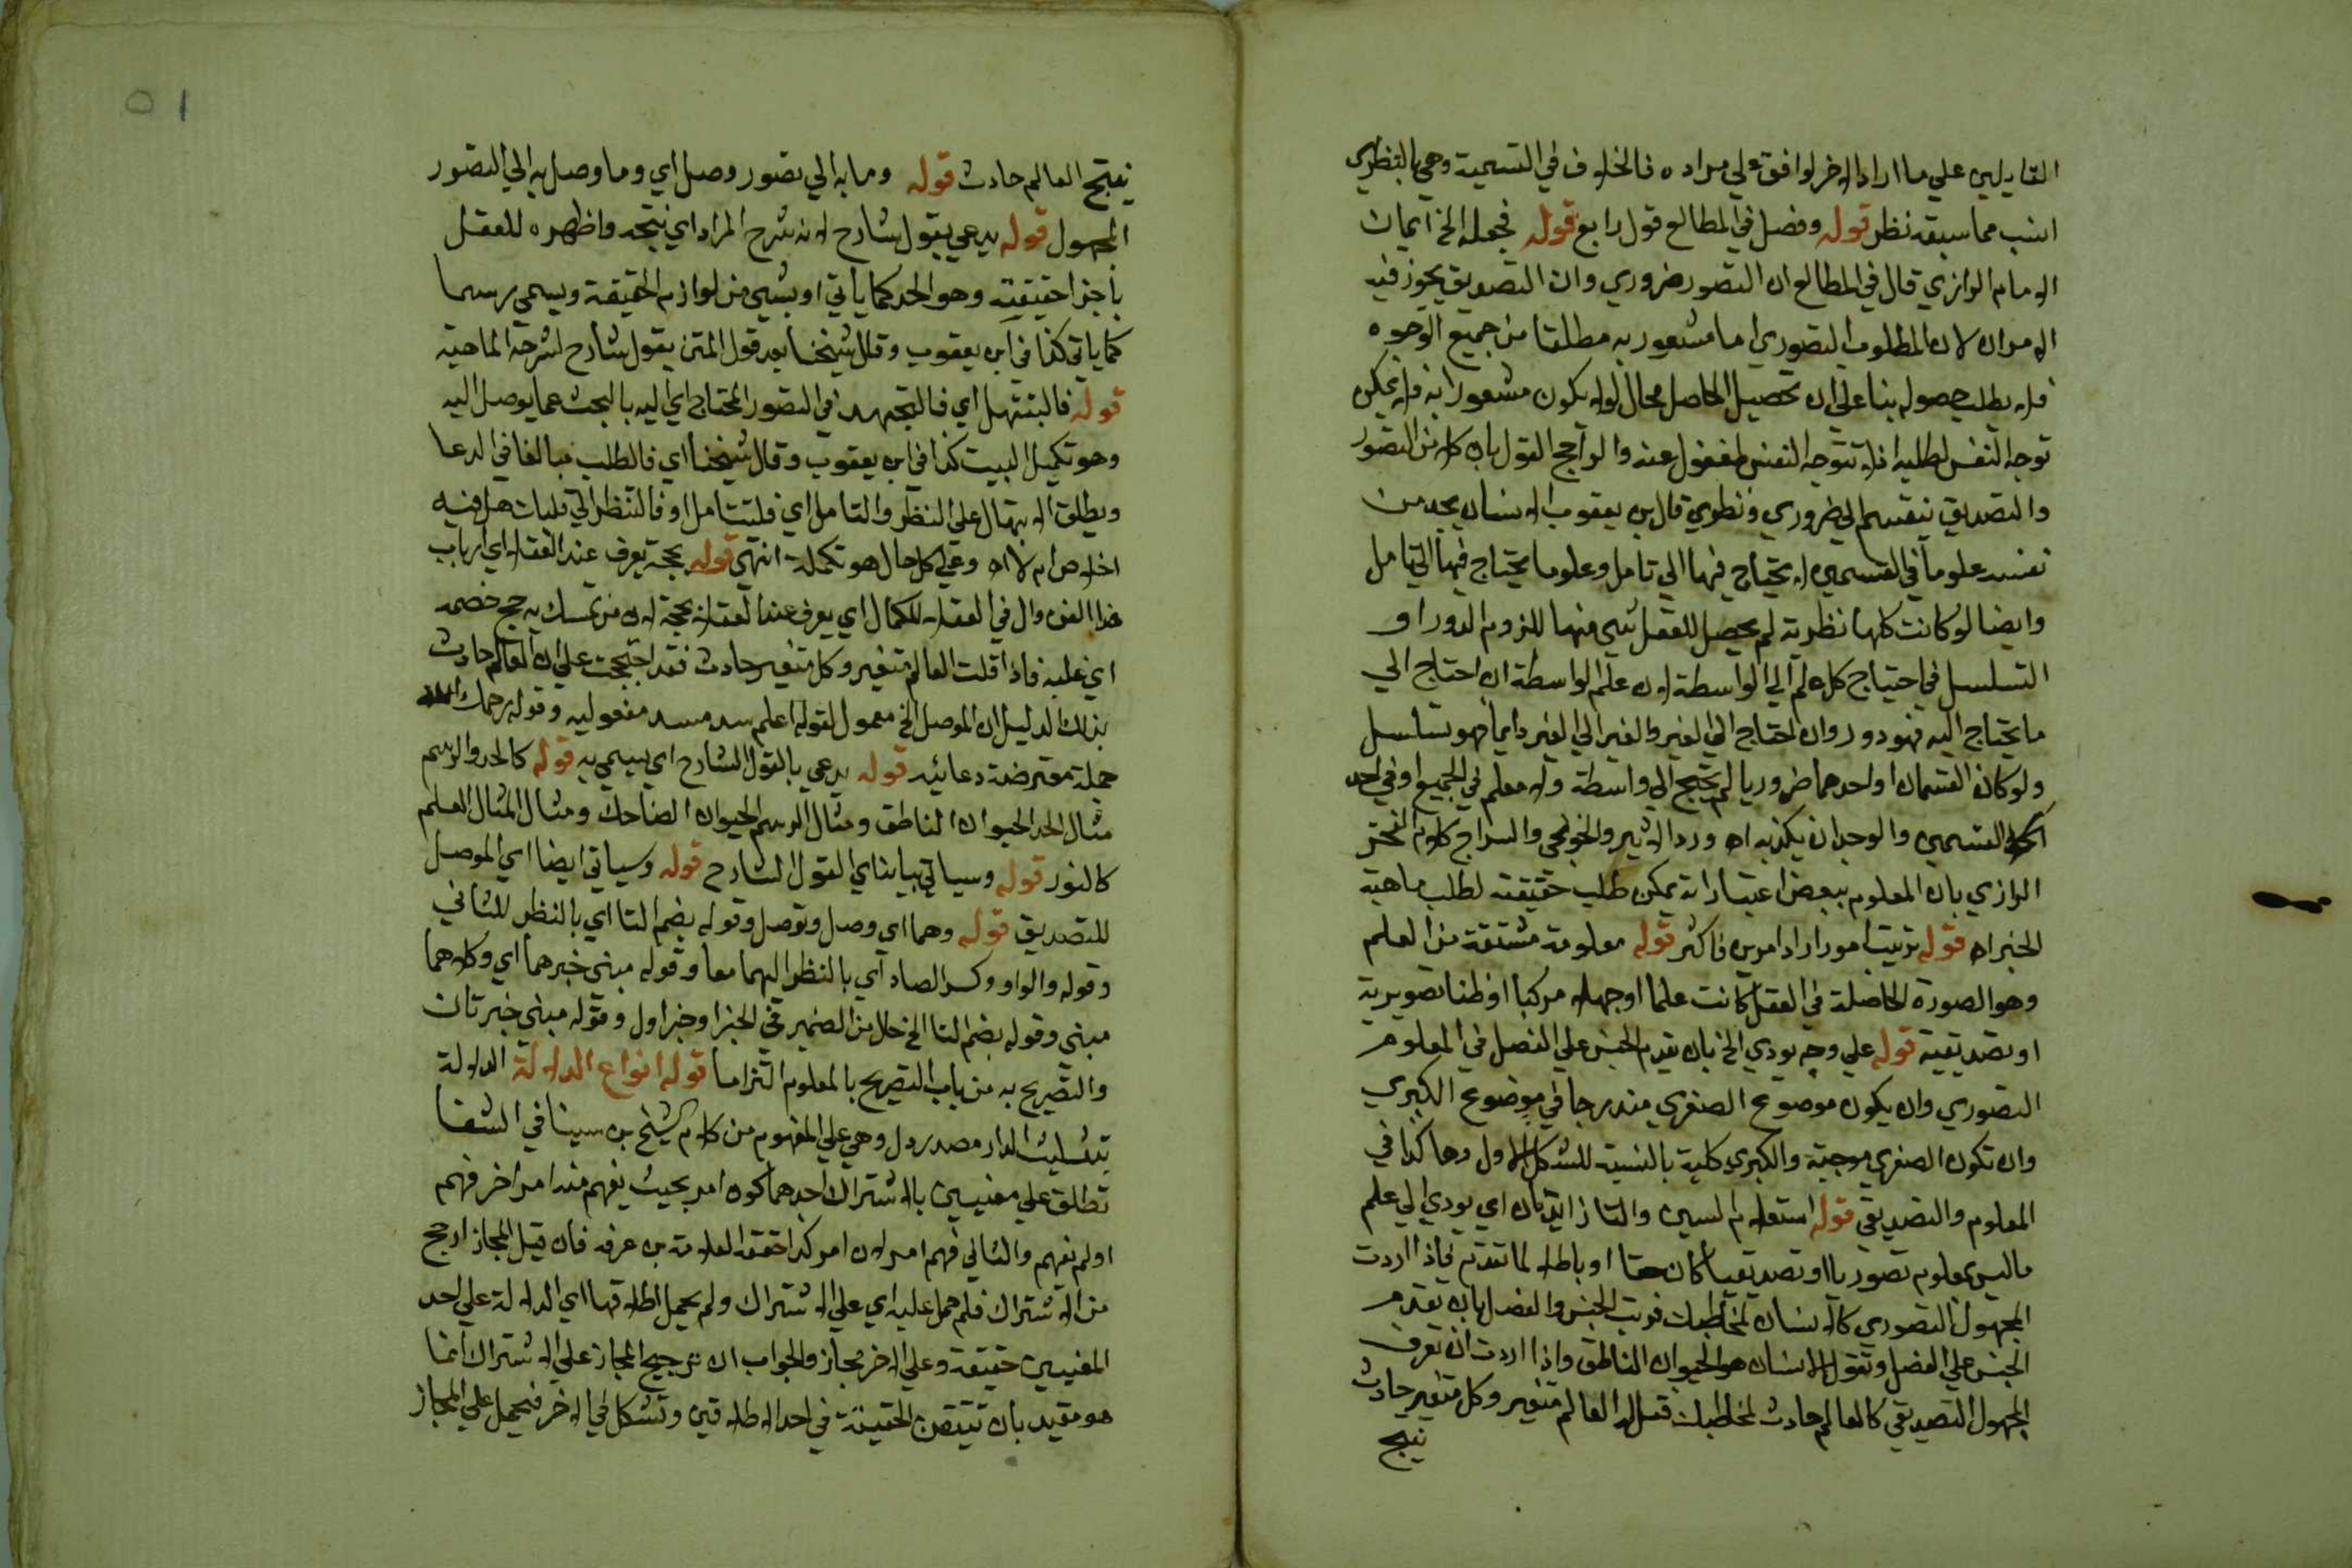 القايلين على ما اراد الاخر لوافق على مراده فالخلاف في التسمية وهي بالنظري
انسب مما سبقه نظر قوله وفصل في المطالع قول رابع قوله فجعله الخ ايمان
الامام الرازي قال في المطالع ان التصور ضروري وان التصديق يجوز فيه
الامران لان المطلوب التصوري اما مشعور به مطلقا من جميع الوجوه
فلا يطلب حصوله بنا على ان تحصيل الحاصل محال اولا يكون مشعورا به فلا يمكن
توجه النفس لطلبه اذ لا تتوجه النفس لمغفول عنه والراجح القول بان كلا من التصور
والتصديق ينقسم الى ضروري ونظري قال بن يعقوب الانسان يجد من
نفسه علوما في القسمين لا يحتاج فيها الي تامل وعلوما يحتاج فيها الي تامل
وايضا لو كانت كلها نظرية لم يحصل للعقل شي منها للزوم الدور او
التسلسل في احتياج كل علم الي الواسطة لان علم الواسطة ان احتاج الي
ما يحتاج اليه فهو دور وان احتاج الي الغير والغير الي الغير دايما فهو تسلسل
ولو كان القسمان او احدهما ضروريا لم يحتج الي واسطة ولا معلم في الجميع او في احد
القسمين والوجدان يكذبه اه ورد الاثير والخونجي والسراج كلام الفخر
الرازي بان المعلوم ببعض اعتباراته يمكن طلب حقيقته لطلب ماهية
الجن اه قوله ترتيب امور اراد امرين فاكثر قوله معلومة مشتقة من العلم
وهو الصورة الحاصلة في العقل كانت علما او جهلا مركبا او ظنا تصويرية
او تصديقية قوله علي وجه يودي الخ بان يقدم الجنس علي الفصل في المعلوم
التصوري وان يكون موضوع الصغري مندرجا في موضوع الكبري
وان تكون الصغري موجبة والكبري كلية بالنسبة للشكل الاول وهاكذا في
المعلوم والتصديقي قوله استعلام السين والتا زايدتان اي يودي الي علم
ماليس بمعلوم تصوريا او تصديقيا كان حقا او باطلا لما تقدم فاذا اردت
المجهول التصوري كالانسان لمخاطبك فرتب الجنس والفصل بان تقدم
الجنس علي الفصل وتقول الانسان هو الحيوان الناطق واذا اردت ان تعرف
المجهول التصديقي كالعالم حادث لمخاطبك فقل له العالم متغير وكل متغير حادث
ينتج
٥١
ينتج العالم حادث قوله وما به الي تصور وصل اي وما وصل به الي التصور
المجهول قوله يدعي بقول شارح لانه شرح المراد اي نتيجه واظهره للعقل
باجزا حقيقته وهو الحد كما ياتي او بشي من لوازم الحقيقة ويسمي رسما
كما ياتي كذا في ابن يعقوب وقال شيخنا بعد قول المتن بقول شارح لشرحه الماهية
قوله فالتبتهل اي فالتجتهد في التصور المحتاج اي اليه بالبحث عما يوصل اليه
وهو تكميل البيت كذا في ابن يعقوب وقال شيخنا اي فالطلب مبالغا في الدعا
ويطلق الابتهال علي النظر والتامل اي فلتتامل او فالتنظر الي قلبك هل فيه
اخلاص ام لا اه وعلي كل حال هو تكملة انتهي قوله بحجة يعرف عند العقلا اي ارباب
هذا الفن وال في العقلا للكمال اي يعرف عند العقلا بحجة لان من تمسك به حج خصمه
اي غلبه فاذا قلت العالم متغير وكل متغير حادث فقد احتججت علي ان العالم حادث
بذلك الدليل ان الموصل الخ معمول لقوله اعلم سد مسد مفعوليه وقوله يرحمك الله
جملة معترضة دعائيه قوله يدعي بالقول الشارح اي يسمي به قوله كالحد والرسم
مثال الحد الحيوان الناطق ومثال الرسم الحيوان الضاحك ومثال المثال العلم
كالنور قوله وسياتي بيانه اي القول الشارح قوله وسياتي ايضا اي الموصل
للتصديق قوله وهما اي وصل وتوصل وقوله بضم التا اي بالنظر للثاني
وقوله والواو وكسر الصاد اي بالنظر اليهما معا وقوله مبني خبرهما اي وكلاهما
مبني وقوله بضم التا الخ حال من الضمير في الخبر او خبر اول وقوله مبني خبر ثان
والتصريح به من باب التصريح بالمعلوم التزاما قوله انواع الدلالة الدلالة
بتثليث الدال مصدر دل وهي علي المفهوم من كلام الشيخ بن سينا في الشفا
تطلق علي معنيين بالاشتراك احدهما كون امر بحيث يفهم منه امر اخر فهم
او لم يفهم والثاني فهم امر من امر كذا حققه العلامة بن عرفه فان قيل المجاز ارجح
من الاشتراك فلم حمل عليه اي علي الاشتراك ولم يحمل اطلاقها اي الدلالة علي احد
المعنيين حقيقة وعلي الاخر مجاز والجواب ان ترجيح المجاز علي الاشتراك انما
هو مقيد بان تتيقن الحقيقة في احد الاطلاقين وتشكل في الاخر فيحمل علي المجاز